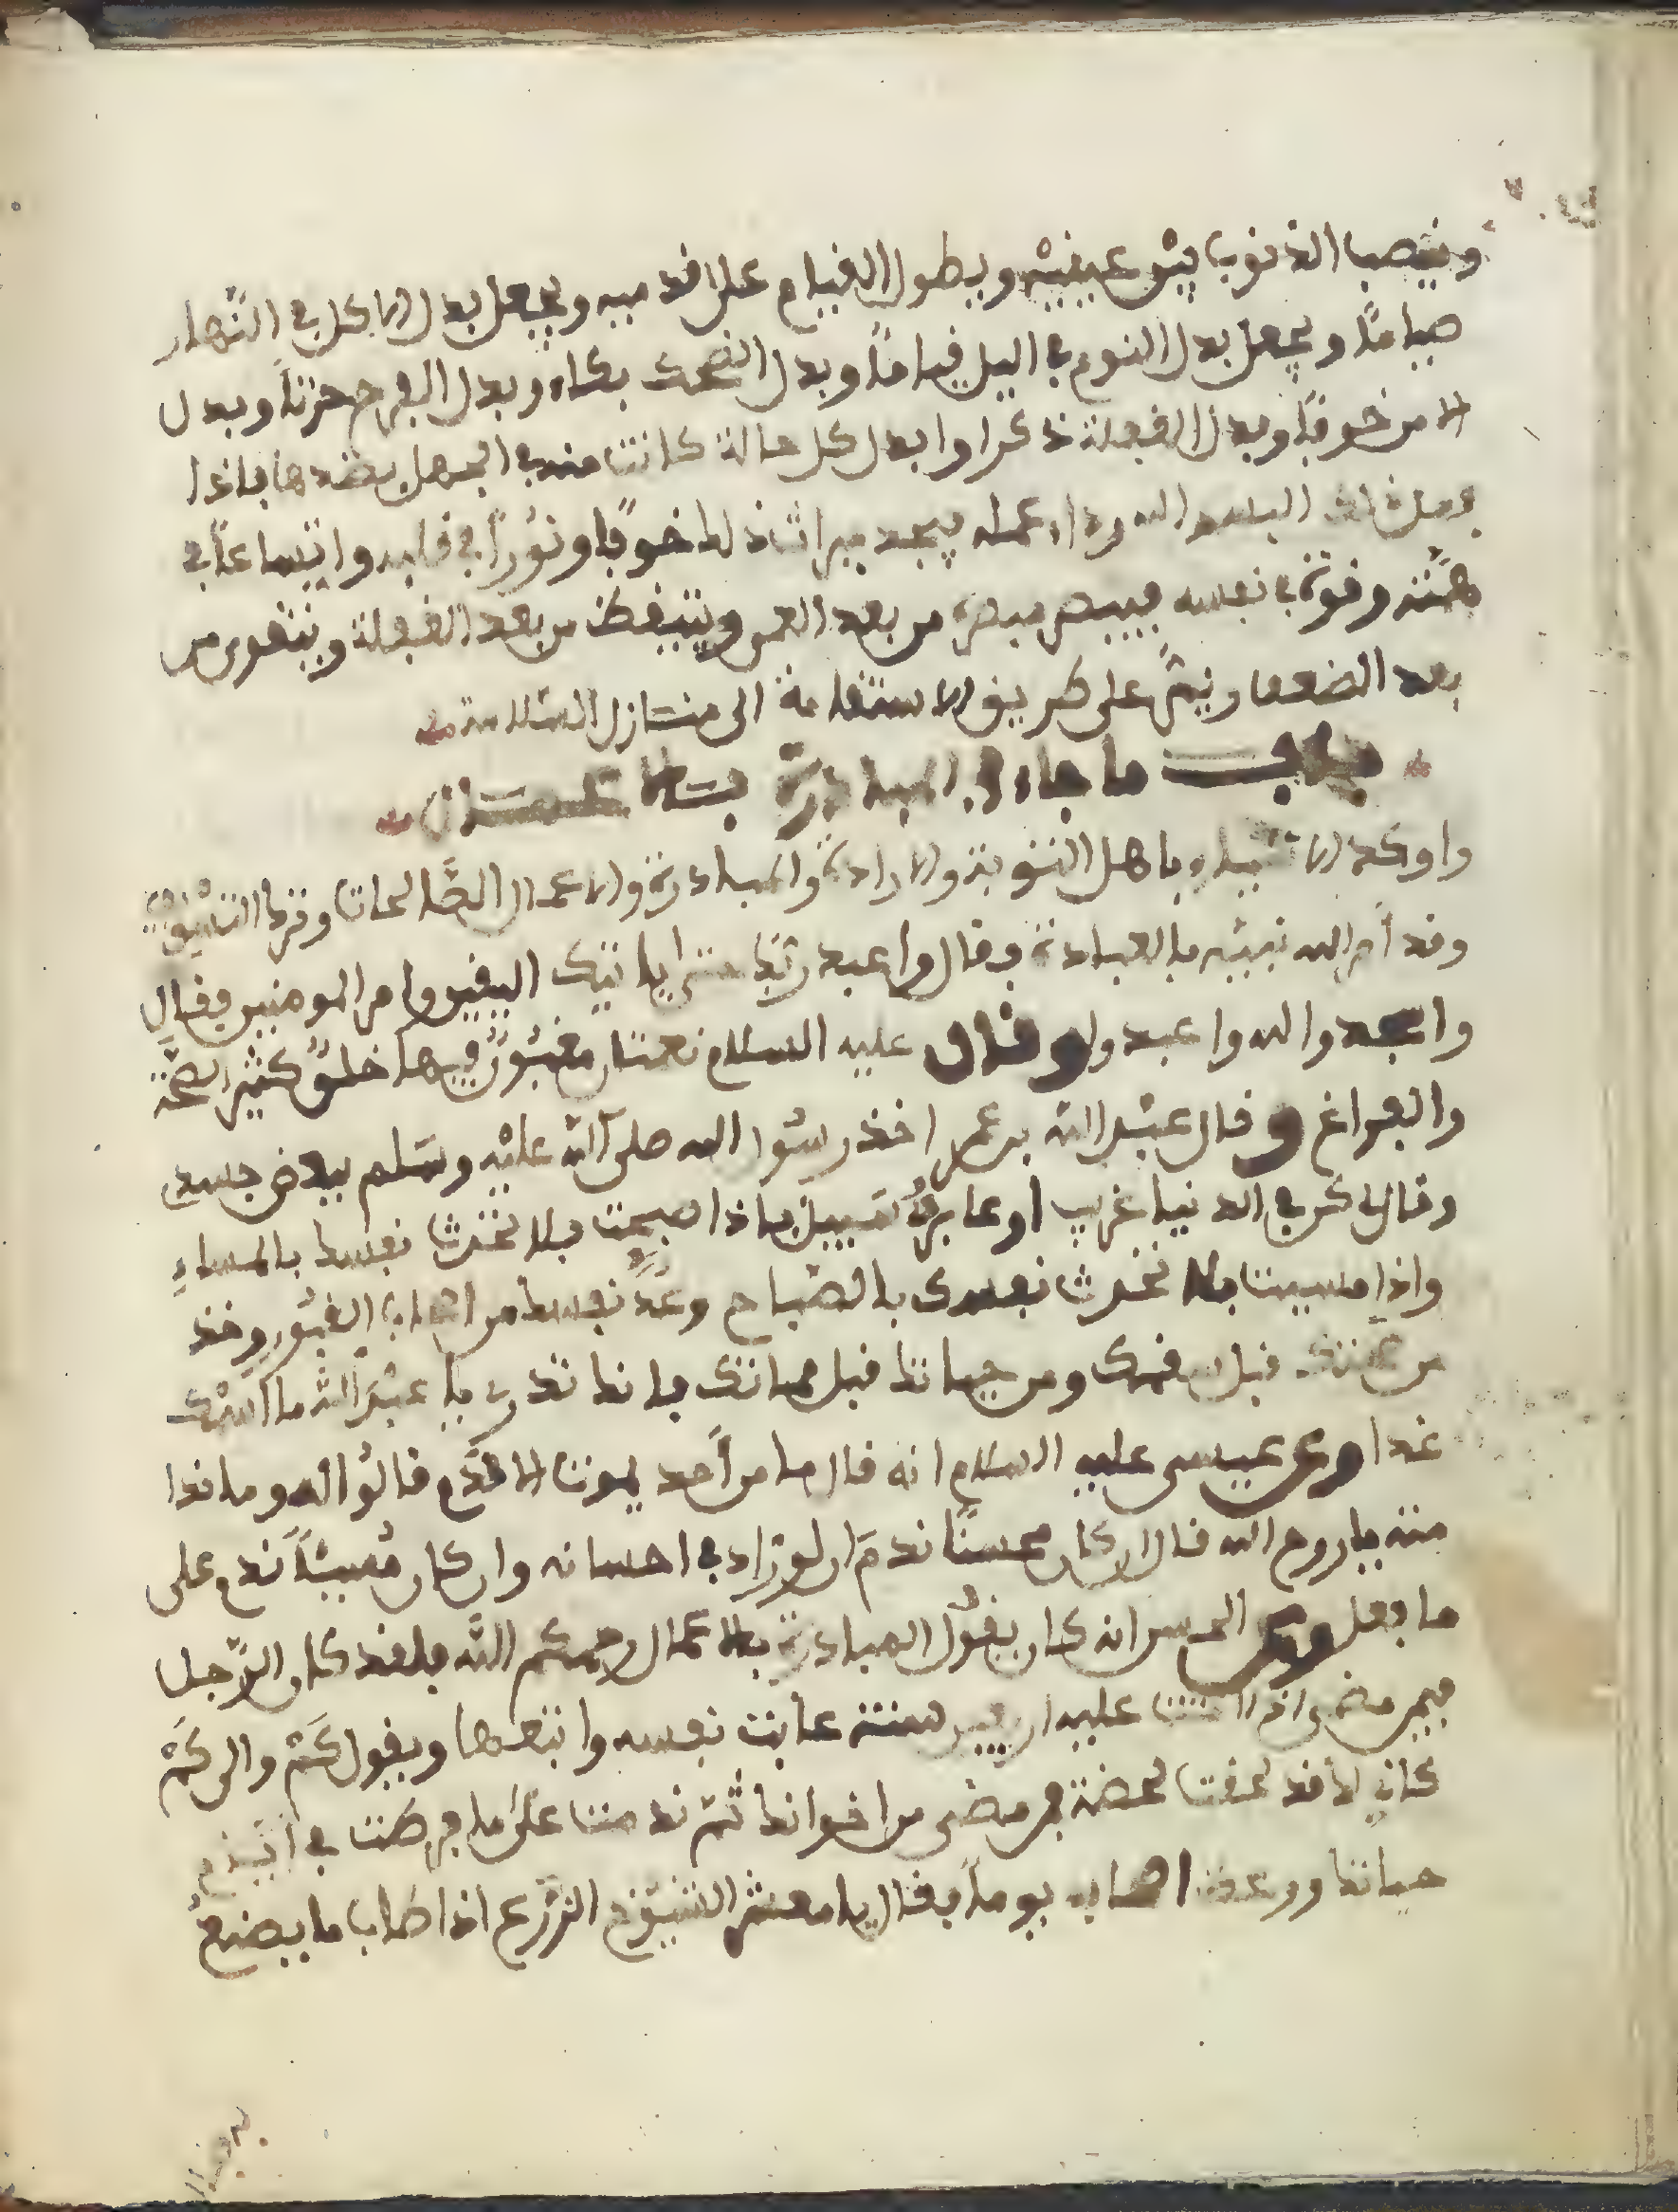 وينصب الذنوب بين عينيه ويطول القيام على قدميه ويجعل بدل الاكل في النهار
صياما ويجعل بدل النوم في اليل قياماً وبدل الضحك بكاء وبدل الفرح حزناً وبدل
الامن خوفاً وبدل الغفلة ذكرا وابدل كل حالة كانت منه في الجهل بضدها فاذا
فعل ذلك البسه الله رداء عمله فيجد ميراث ذلك خوفا ونوراً في قلبه واتساعاً في
همته وقوة في نفسه فيبصر من بعد العمى ويتيقظ من بعد الغفلة ويتقوى من
بعد الضعف ويمر على طريق الاستقامة الى منازل السلامة
باب ما جاء في المبادرة
واوكد الاشياء باهل التوبة والارادة والمبادرة والاعمال الصالحات وترك التسويف
وقد أمر الله نبيه بالعبادة فقال واعبد ربك حتى ياتيك اليقين وامر المومنين فقال
واسجدوا لله واعبدوا وقال عليه السلام نعمتان مغبون فيها خلق كثير الصحة
والفراغ وقال عبد الله بن عمر اخذ رسول الله صلى الله عليه وسلم ببعض جسدي
وقال كن في الدنيا غريب او عابر سبيل فاذا اصبحت فلا تحدث نفسك بالمساء
واذا مسيت فلا تحدث نفسك بالصباح وعد نفسك من اصحاب القبور وخذ
من صحتك قبل سقمك ومن حياتك قبل مماتك فانك لا تدري يا عبد الله ما اسمك
غدا وعن عيسى عليه السلام انه قال ما من أحد يموت الا ندم قالوا له وماندا
منه يا روح الله قال ان كان محسنا ندم ان لو زاد في احسانه وان كان مسيئاً ندم على
ما فعل وعن الحسن انه كان يقول المبادرة بالاعمال رحمكم الله فلقد كان الرجل
فيمن مضى اذا اتت عليه اربعين سنة عاتب نفسه واتعبها ويقول كم والى كم
كاني بك قد لحقت لحضة بمن مضى من اخوانك ثم ندمت على ما فرطت في ايام
حياتك ووعظ اصحابه يوماً فقال يا معشر الشيوخ الزرع اذا طاب ما يصنع